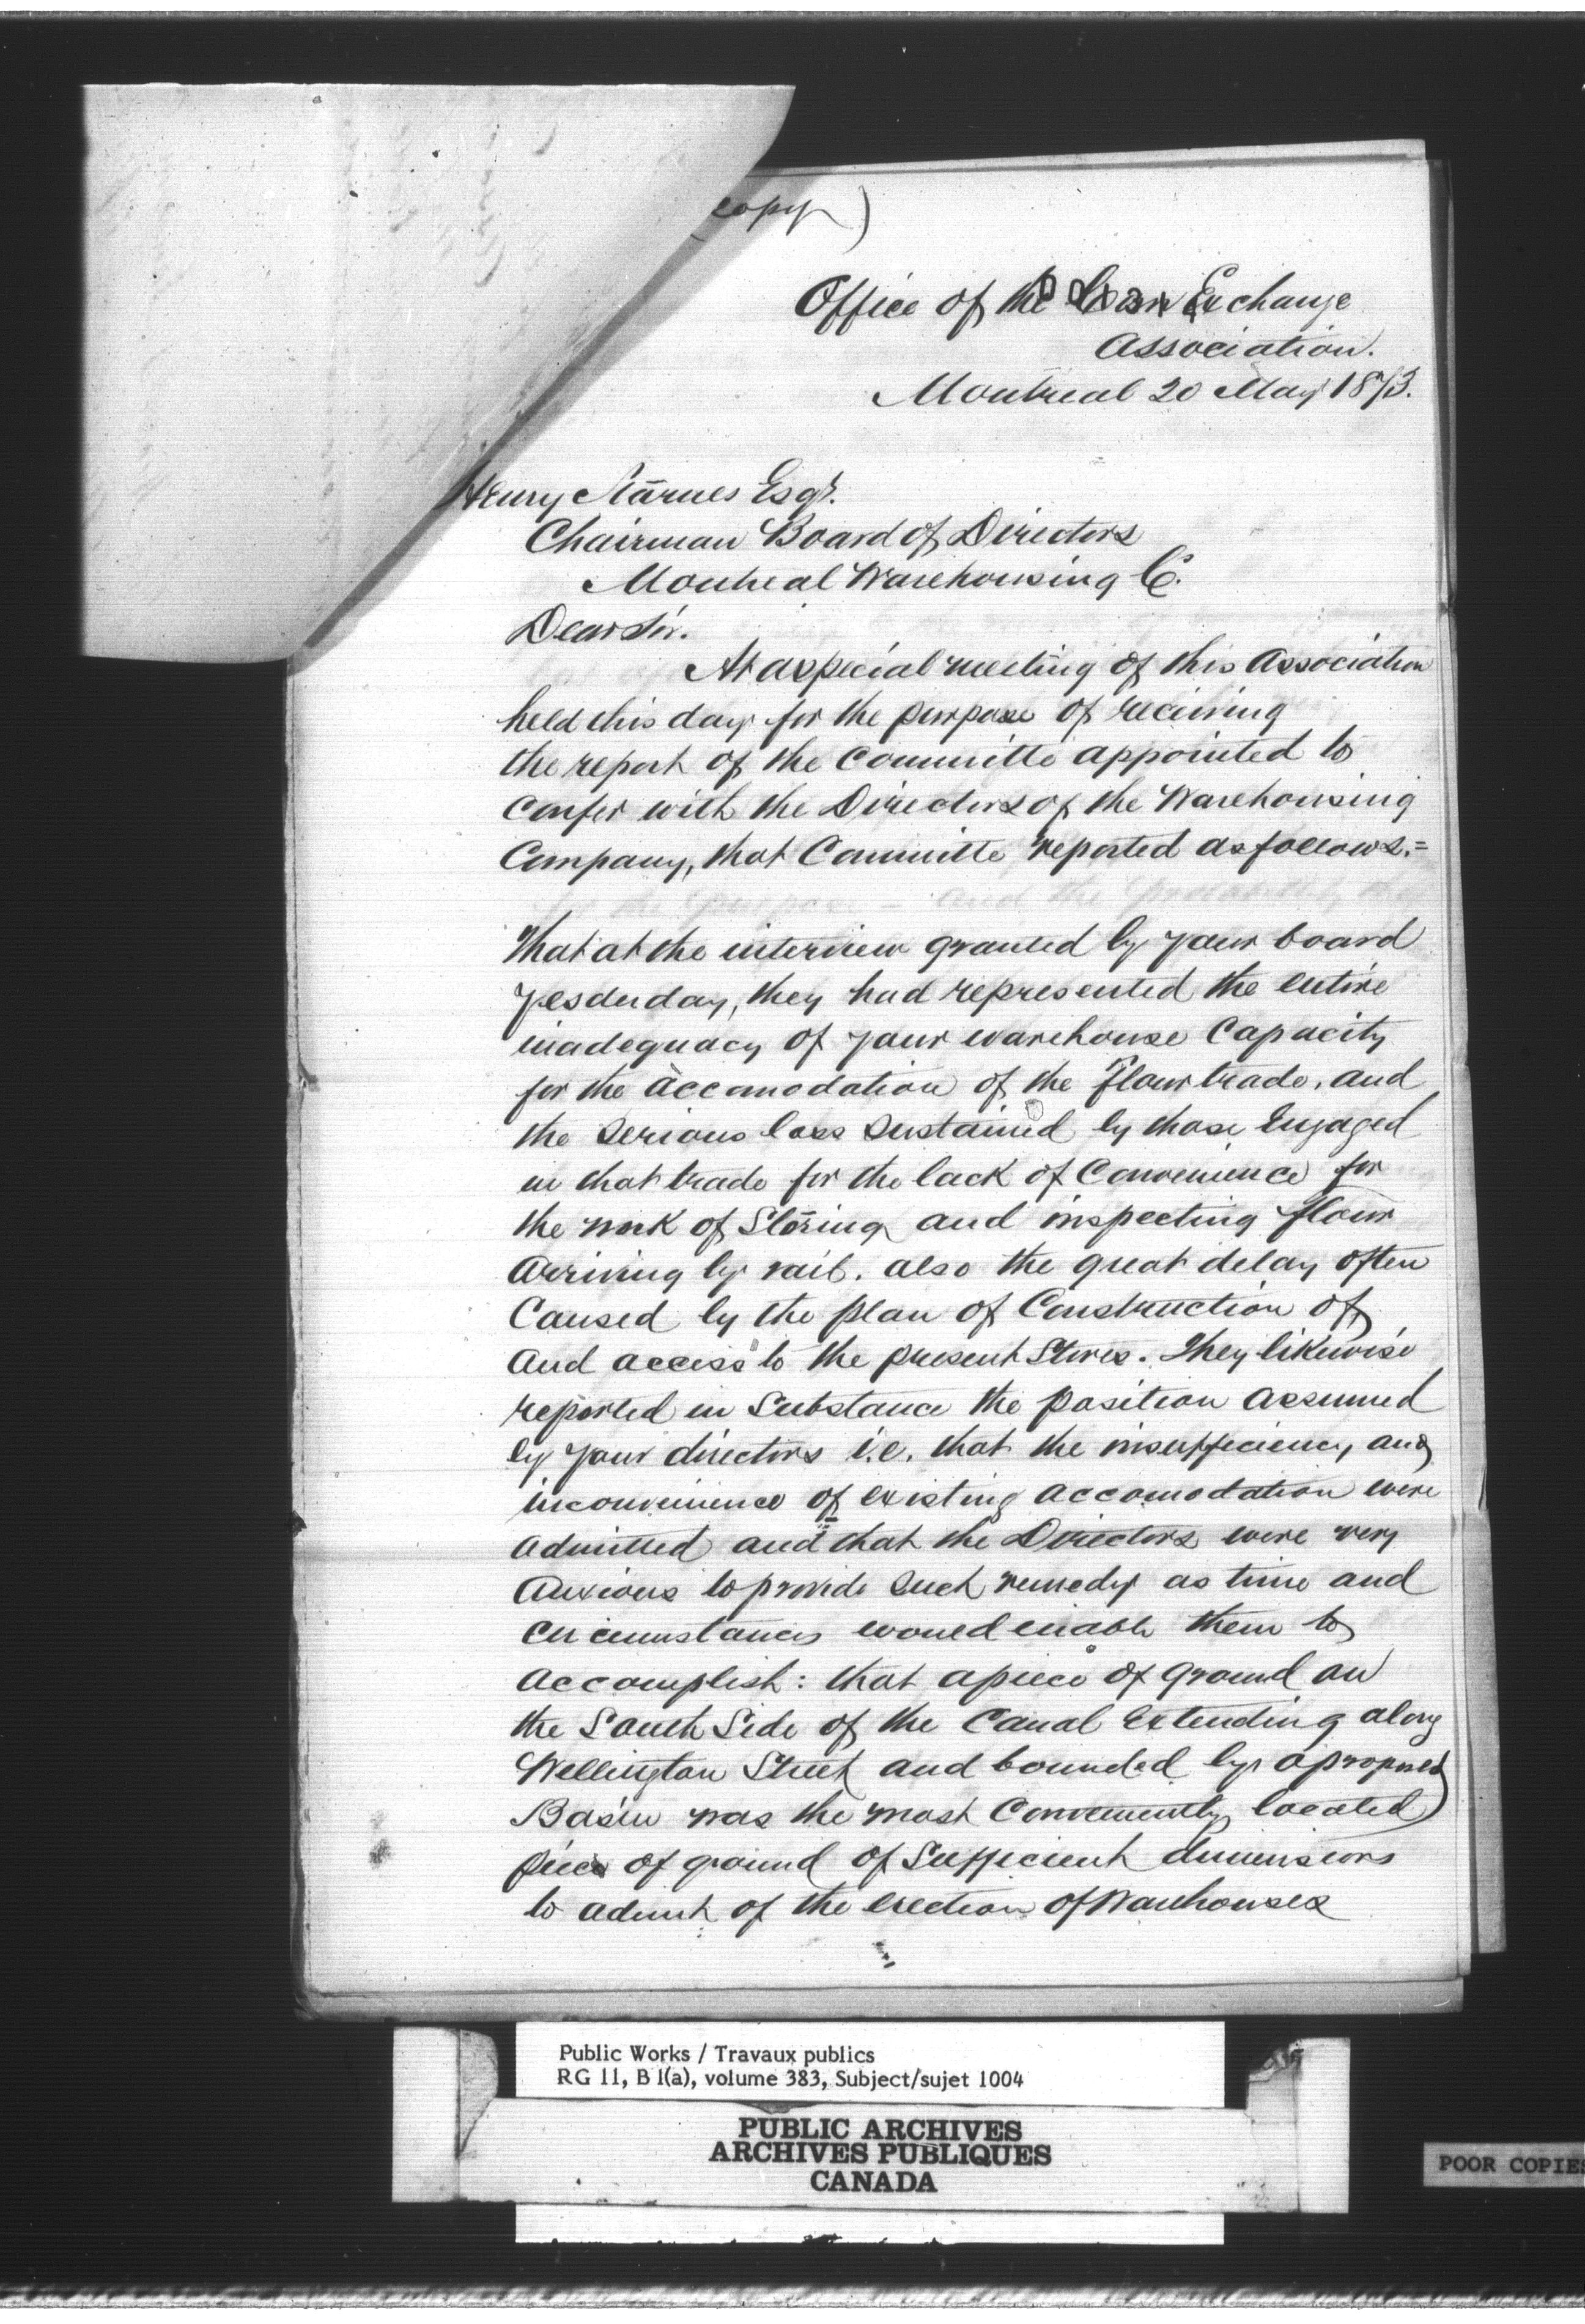 copy)
Office of the Corn Exchange
Association.
Montreal 20 May 1873.
Henry Esqr.
Chairman Board of Directors
Montreal Warehousing Co.
Dear Sir.
At a special meeting of this Association
held this day for the purpose of receiving
the report of the Committe appointed to
Confer with the Directors of the Warehousing
Company, that Committe reported as follows.=
That at the interview granted by your board
yesderday, they had represented the entire
inadequacy of your warehouse Capacity
for the accomodation of the Flour trade, and
the Serious loss Sustained by those Engaged
in that trade for the lack of Convenience for
the work of Storing and inspecting flour
Arriving by rail. also the great delay often
Caused by the plan of Construction of
And access to the present Stores. They likewise
reported in Substance the position assumed
by your directors i.e. that the insufficiency and
inconvenience of existing accomodation were
Admitted and that the Directors were very
Anxious to provide Such remedy as time and
Circumstances would enable them to
Accomplish: that a piece of ground on
the South Side of the Canal Extending along
Wellington Street and bounded by a proposed
Basin was the most Conveniently located
piece of ground of Sufficient dimensions
to admit of the erection of Warehouses
Public Works / Travaux publics
RG 11, B 1(a), volume 383, Subject/sujet 1004
PUBLIC ARCHIVES
ARCHIVES PUBLIQUES
CANADA
POOR COPIES